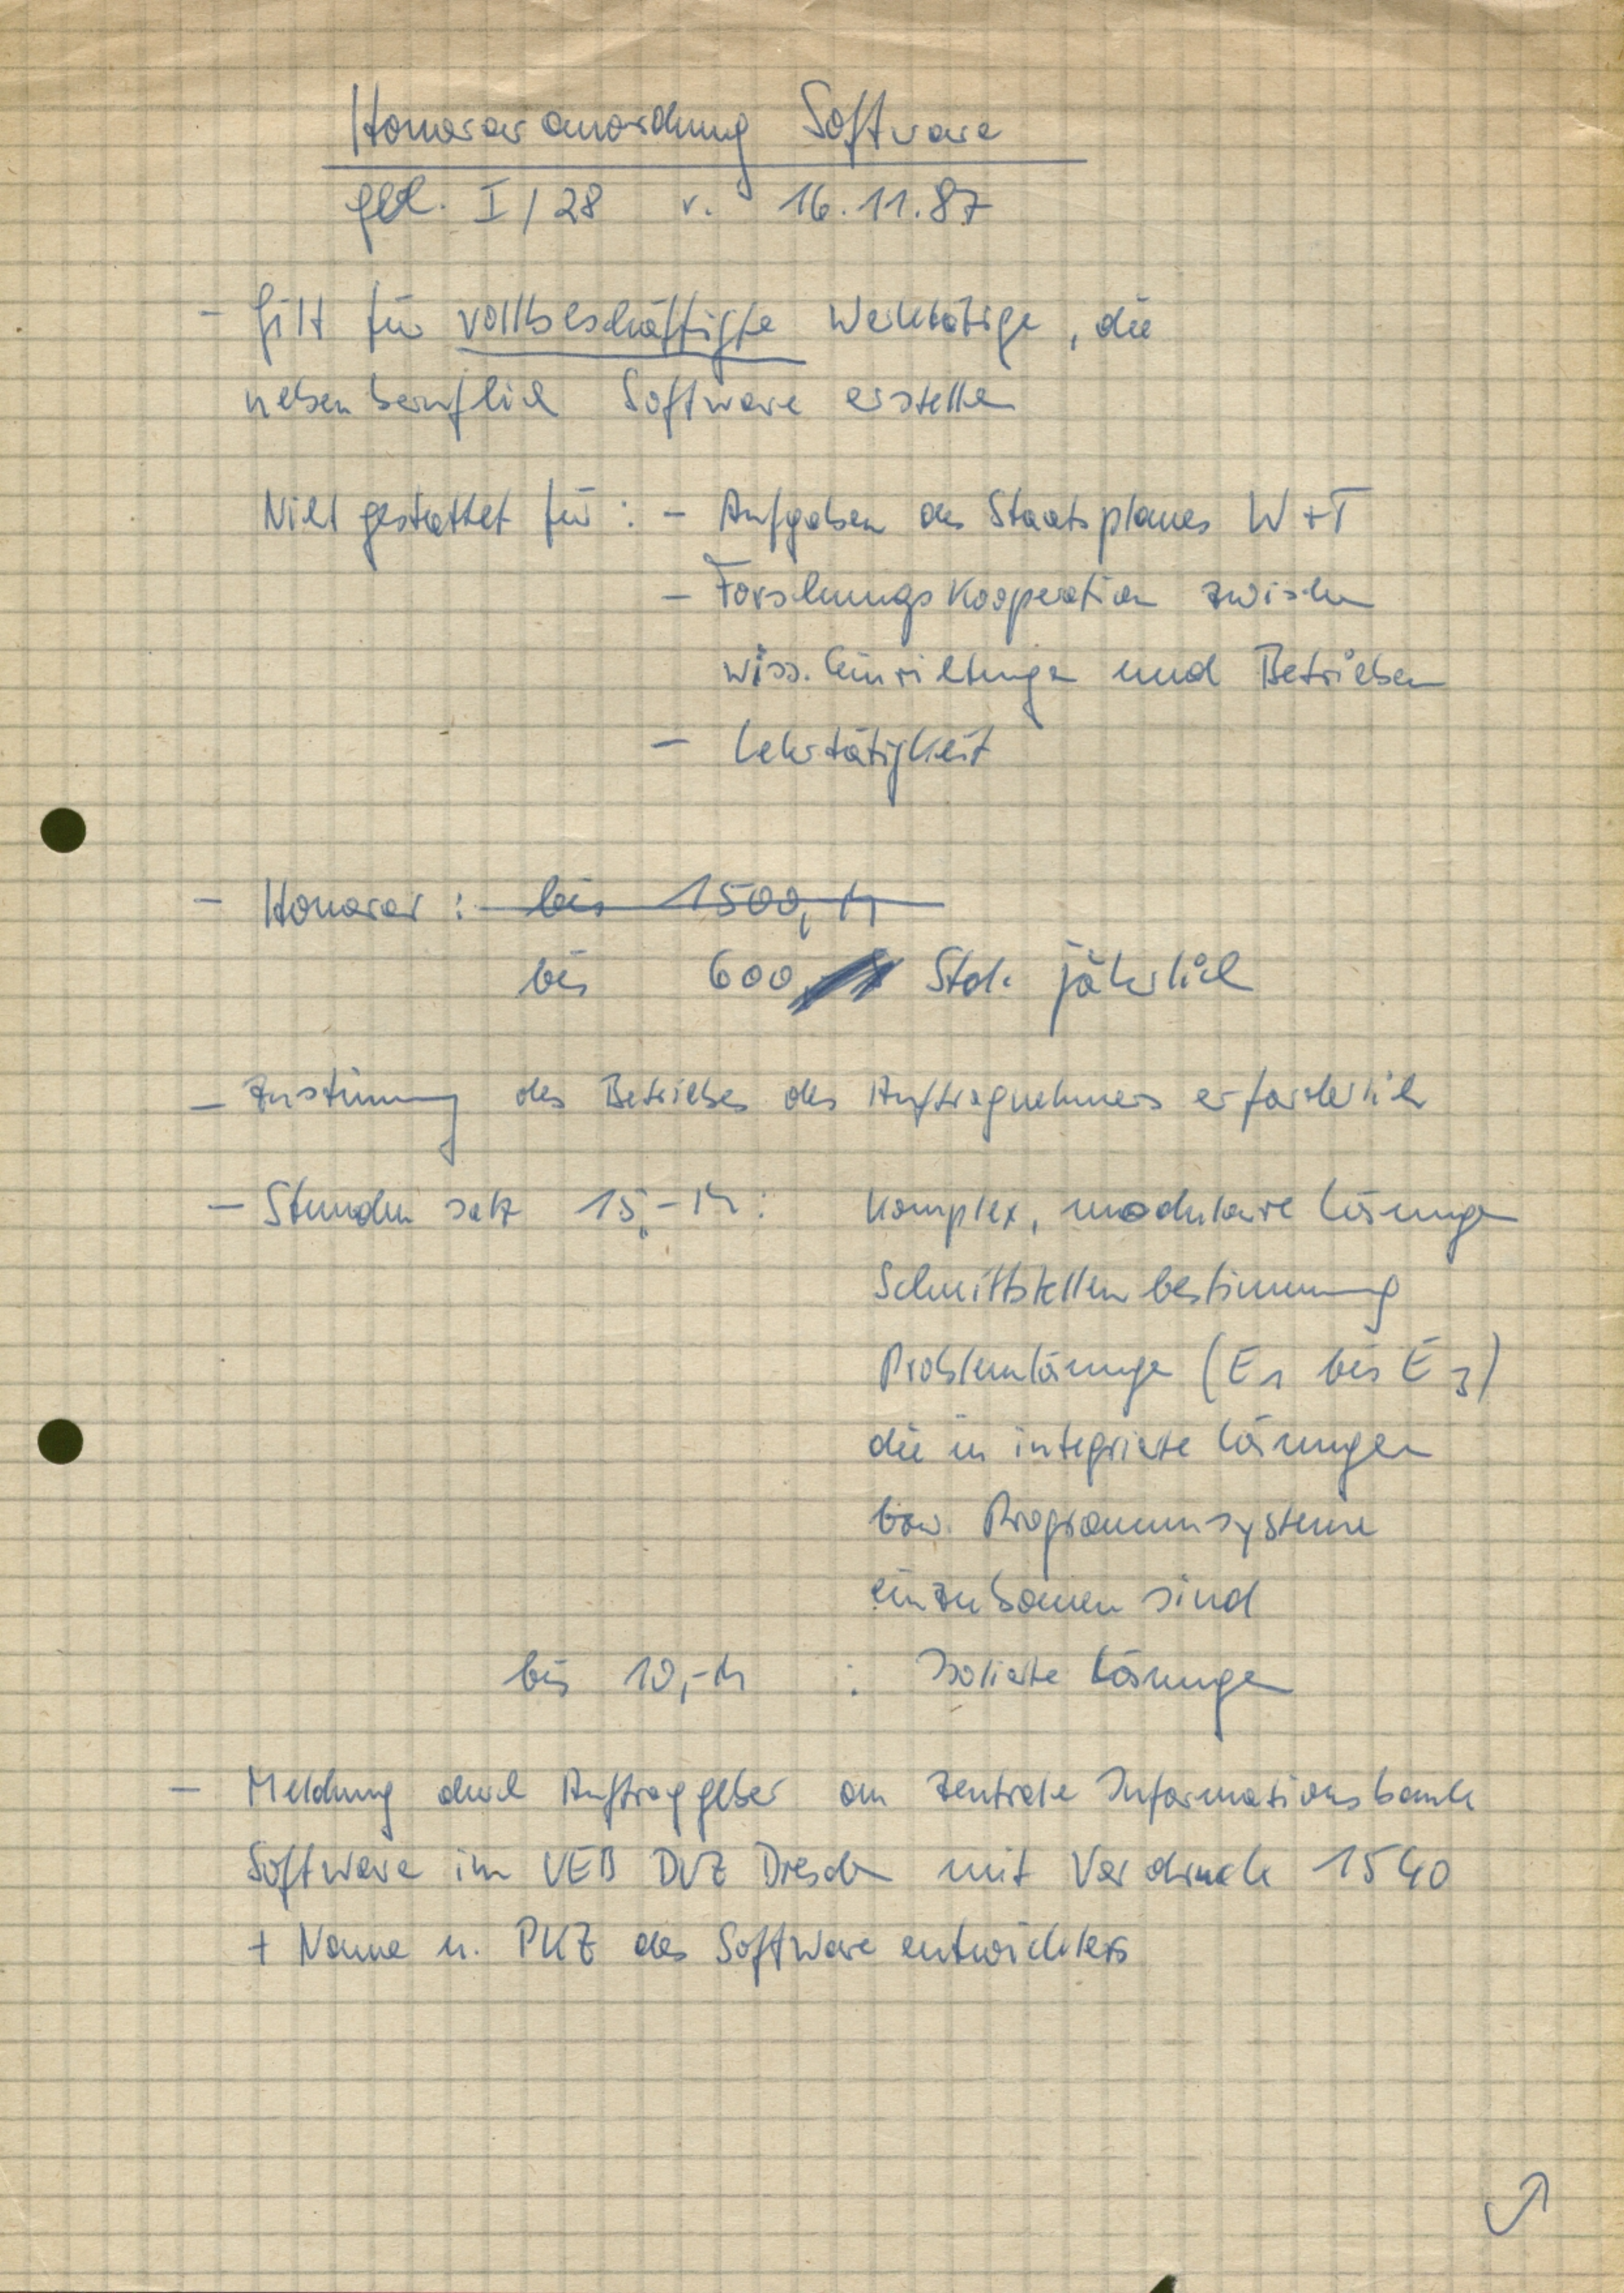 Honoraranordnung Software
gbl. I/28 v. 16.11.87
- Gilt für vollbeschäftigte Werktätige, die
nebenberuflich Software erstellen
Nicht gestattet für: - Aufgaben des Staatsplanes W+T
- Forschungskooperation zwischen
wiss. Einrichtungen und Betrieben
- Lehrtätigkeit
- Honorar: bis 1500,- M
bis 600 Std. jährlich
- Zustimmung des Betriebes des Auftragnehmers erforderlich
- Stundensatz 15,- M: Komplex, modulare Lösungen
Schnittstellenbestimmung
Problemlösungen (E1 bis E3)
die in integrierte Lösungen
bzw. Programmsysteme
einzubauen sind
bis 10,- M : Isolierte Lösungen
- Meldung durch Auftraggeber an zentrale Informationsbank
Software im VEB DVZ Dresden mit Vordruck 1540
+ Name u. PKZ des Softwareentwicklers